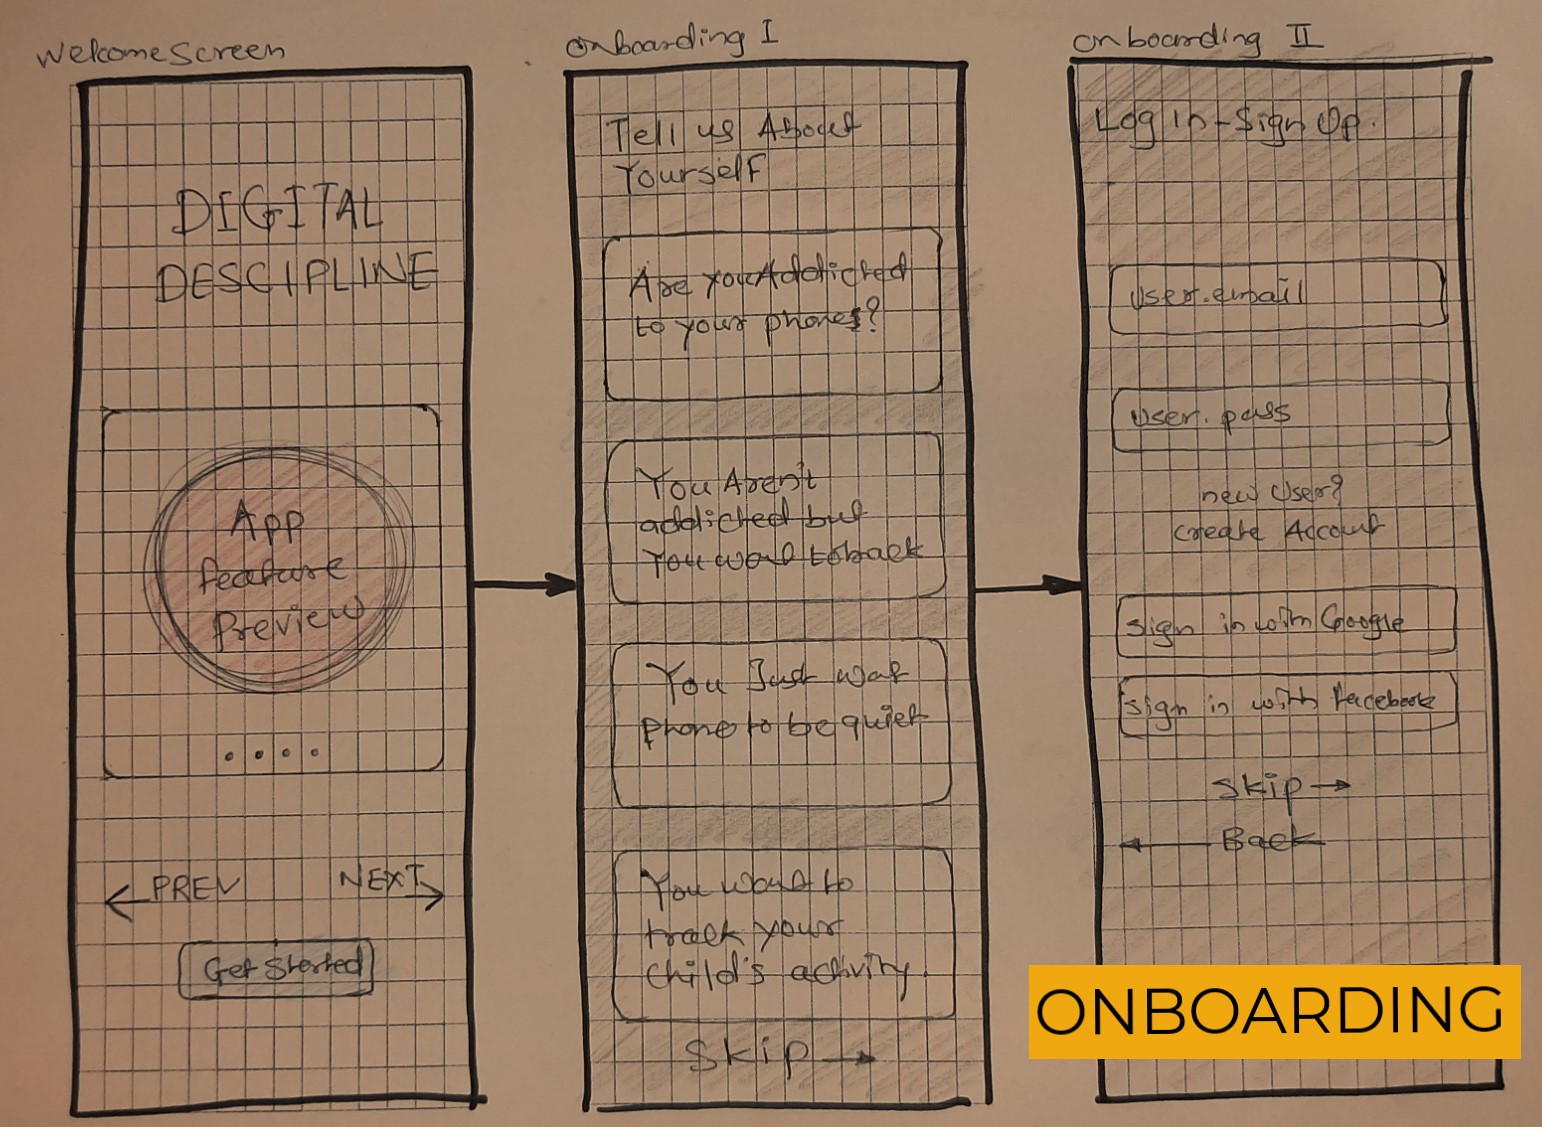 WelcomeScreen
DIGITAL
DESCIPLINE
App
feature
Preview
PREV
NEXT
Get Started
onboarding I
Tell us About
Yourself
Are you Addicted
to your phones?
You Aren't
addicted but
You want to track
You Just wat
phone to be quiet
You want to
track your
child's activity.
Skip →
onboarding II
Log In - Sign Up.
user.email
user.pass
new user?
create Account
sign in with Google
sign in with facebook
Skip →
← Back
ONBOARDING